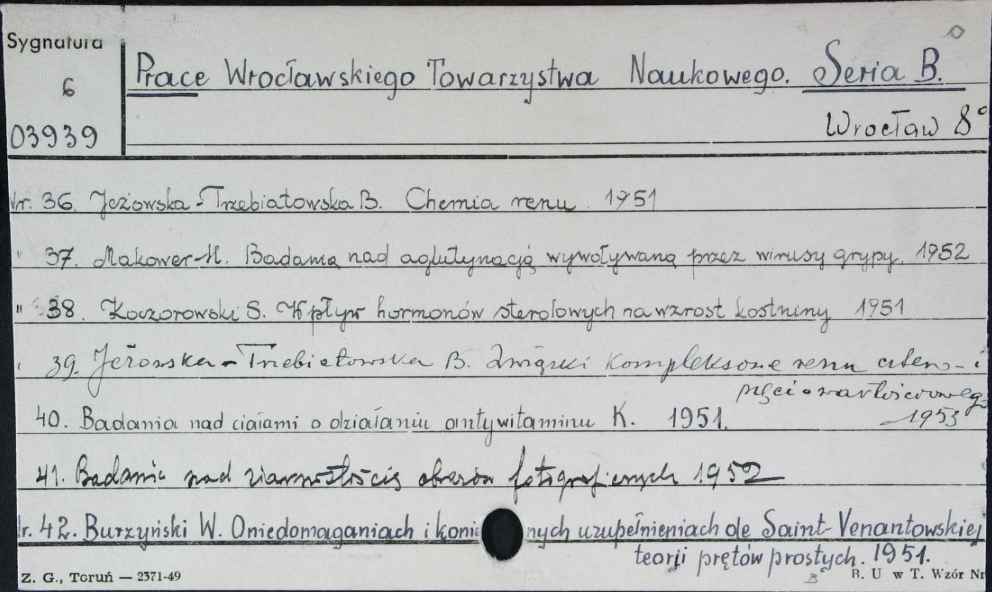 Sygnatura
6
03939
Prace Wrocławskiego Towarzystwa Naukowego. Seria B.
Wrocław 8°
Nr. 36. Jeżowska-Trzebiatowska B. Chemia renu 1951
" 37. Makower H. Badania nad aglutynacją wywoływaną przez wirusy grypy. 1952
" 38. Koczorowski S. Wpływ hormonów sterolowych na wzrost kostniny 1951
" 39. Jeżowska-Trzebiatowska B. Związki kompleksowe renu cztero- i
pięciowartościowego
1953
40. Badania nad ciałami o działaniu antywitaminu K. 1951.
41. Badania nad ziarnistością obrazów fotograficznych 1952
Nr. 42. Burzyński W. O niedomaganiach i konie nych uzupełnieniach de Saint-Venantowskiej
teorji prętów prostych. 1951.
Z. G., Toruń — 2371-49
B. U w T. Wzór Nr